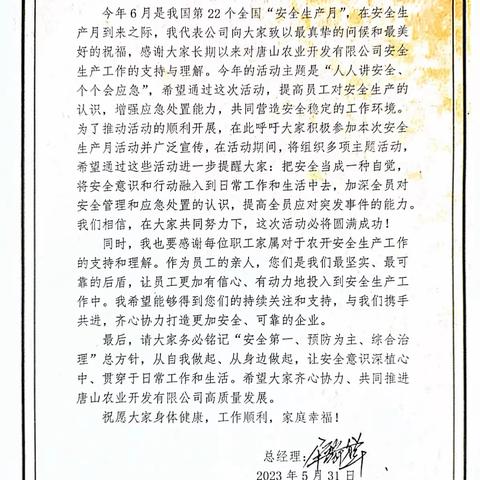 今年6月是我国第22个全国“安全生产月”，在安全生
产月到来之际，我代表公司向大家致以最真挚的问候和最美
好的祝福，感谢大家长期以来对唐山农业开发有限公司安全
生产工作的支持与理解。今年的活动主题是“人人讲安全、
个个会应急”，希望通过这次活动，提高员工对安全生产的
认识，增强应急处置能力，共同营造安全稳定的工作环境。
为了推动活动的顺利开展，在此呼吁大家积极参加本次安全
生产月活动并广泛宣传，在活动期间，将组织多项主题活动，
希望通过这些活动进一步提醒大家：把安全当成一种自觉，
将安全意识和行动融入到日常工作和生活中去，加深全员对
安全管理和应急处置的认识，提高全员应对突发事件的能力。
我们相信，在大家共同努力下，这次活动必将圆满成功！
同时，我也要感谢每位职工家属对于农开安全生产工作
的支持和理解。作为员工的亲人，您们是我们最坚实、最可
靠的后盾，让员工更加有信心、有动力地投入到安全生产工
作中。我希望能够得到您们的持续关注和支持，与我们携手
共进，齐心协力打造更加安全、可靠的企业。
最后，请大家务必铭记“安全第一、预防为主、综合治
理”总方针，从自我做起、从身边做起，让安全意识深植心
中、贯穿于日常工作和生活。希望大家齐心协力、共同推进
唐山农业开发有限公司高质量发展。
祝愿大家身体健康，工作顺利，家庭幸福！
总经理：
2023年5月31日